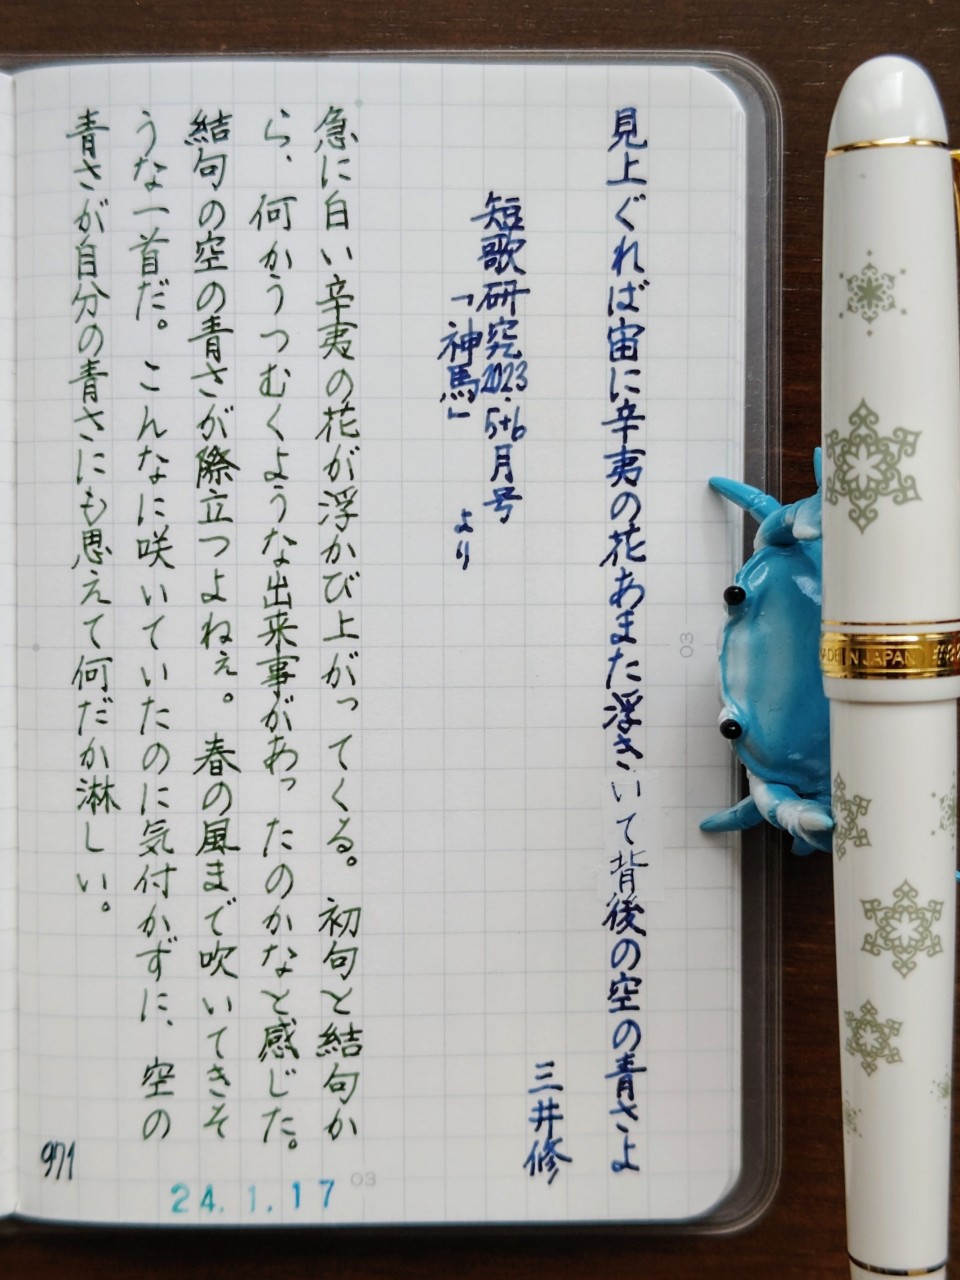 見上ぐれば宙に辛夷の花あまた浮きいて背後の空の青さよ
三井修
短歌研究2023.5+6月号
「神馬」より
急に白い辛夷の花が浮かび上がってくる。初句と結句か
ら、何かうつむくような出来事があったのかなと感じた。
結句の空の青さが際立つよねぇ。春の風まで吹いてきそ
うな一首だ。こんなに咲いていたのに気付かずに、空の
青さが自分の青さにも思えて何だか淋しい。
971
24.1.17
03
03
MADE IN JAPAN